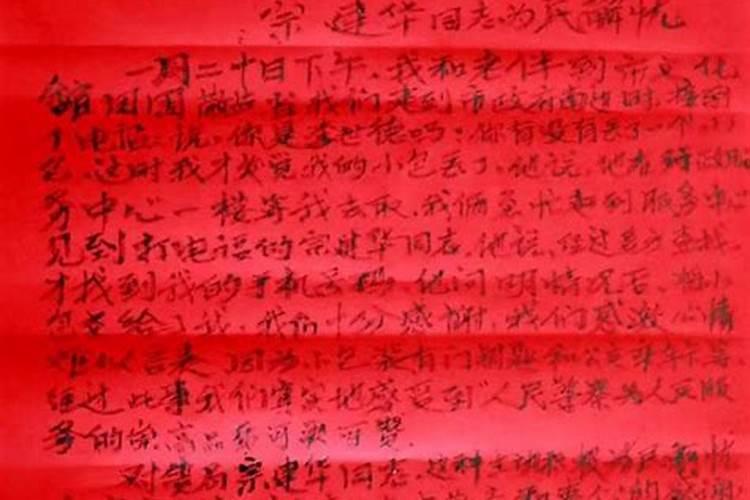 宗建华同志为民解忧
一月二十日下午,我和老伴到市文化
宫围园散步,当我们走到市政府南边时,接到
个电话说,你是李世德吗?你有没有丢了一个小
包,这时我才发觉我的小包丢了,他说,他在行政服
务中心一楼等我去取.我俩急忙赶到服务中心
见到打电话的宗建华同志,他说,经过多方查找,
才找到我的手机号码,他问明情况后,把小
包交给了我,我们十分感谢,我们感激心情
难以言表,因为小包装有门钥匙和公交车卡等.
经过此事我们实实地感受到"人民警察为人民服
务的崇高品质可歌可赞.
对警局宗建华同志,这种主动积极为民解忧